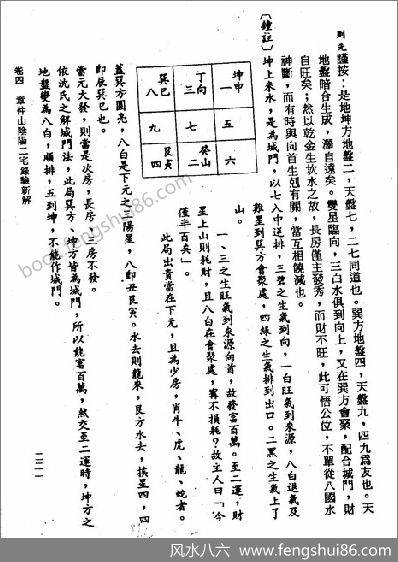 劉先謹按：是地坤方地盤二，天盤七，二七同道也。巽方地盤四，天盤九，四九為友也。天
地盤暗合生成，澤自遠矣。變星臨向，三白水俱到向上，又在巽方會聚，配合城門，財
自旺矣；然以乾金生坎水之故，長房僅主發秀，而財不旺，此可悟公位，不單從八國水
神斷，而有時與向首生剋有關，當互相饒減也。
〔鍾註〕坤上來水，是為城門，以七入中逆排，三碧之生氣到向，一白旺氣到來源，八白進氣及
雜星到巽方會聚處，四綠之生氣排到出口。二黑之生氣上了
山。
坤申
一
五
六
丁向
三
七
二
癸山
巽巳
八
九
四
艮寅
一、三之生旺氣到來源向首，故發富百萬。至二運，財
星上山則耗財，且八白在會聚處，寧不損耗？故主人曰「今
僅半百矣」。
此局出貴當在下元，且為少房，肖牛、虎、龍、蛇者。
蓋巽方圓亮，八白是下元之三陽星，八即丑艮寅。水去則龍來，艮方水去，挨星四，四
即辰巽巳也。
當元大發，則當是次房，長房、三房不發。
依沈氏之解城門法，此局巽方、坤方皆為城門，所以能富百萬，然交至二運時，坤方之
地盤變為八白，順排，五到坤，不能作城門。
卷四 章仲山陰陽二宅錄驗新解
二二一
book.fengshui86.com
风水八六 - www.fengshui86.com